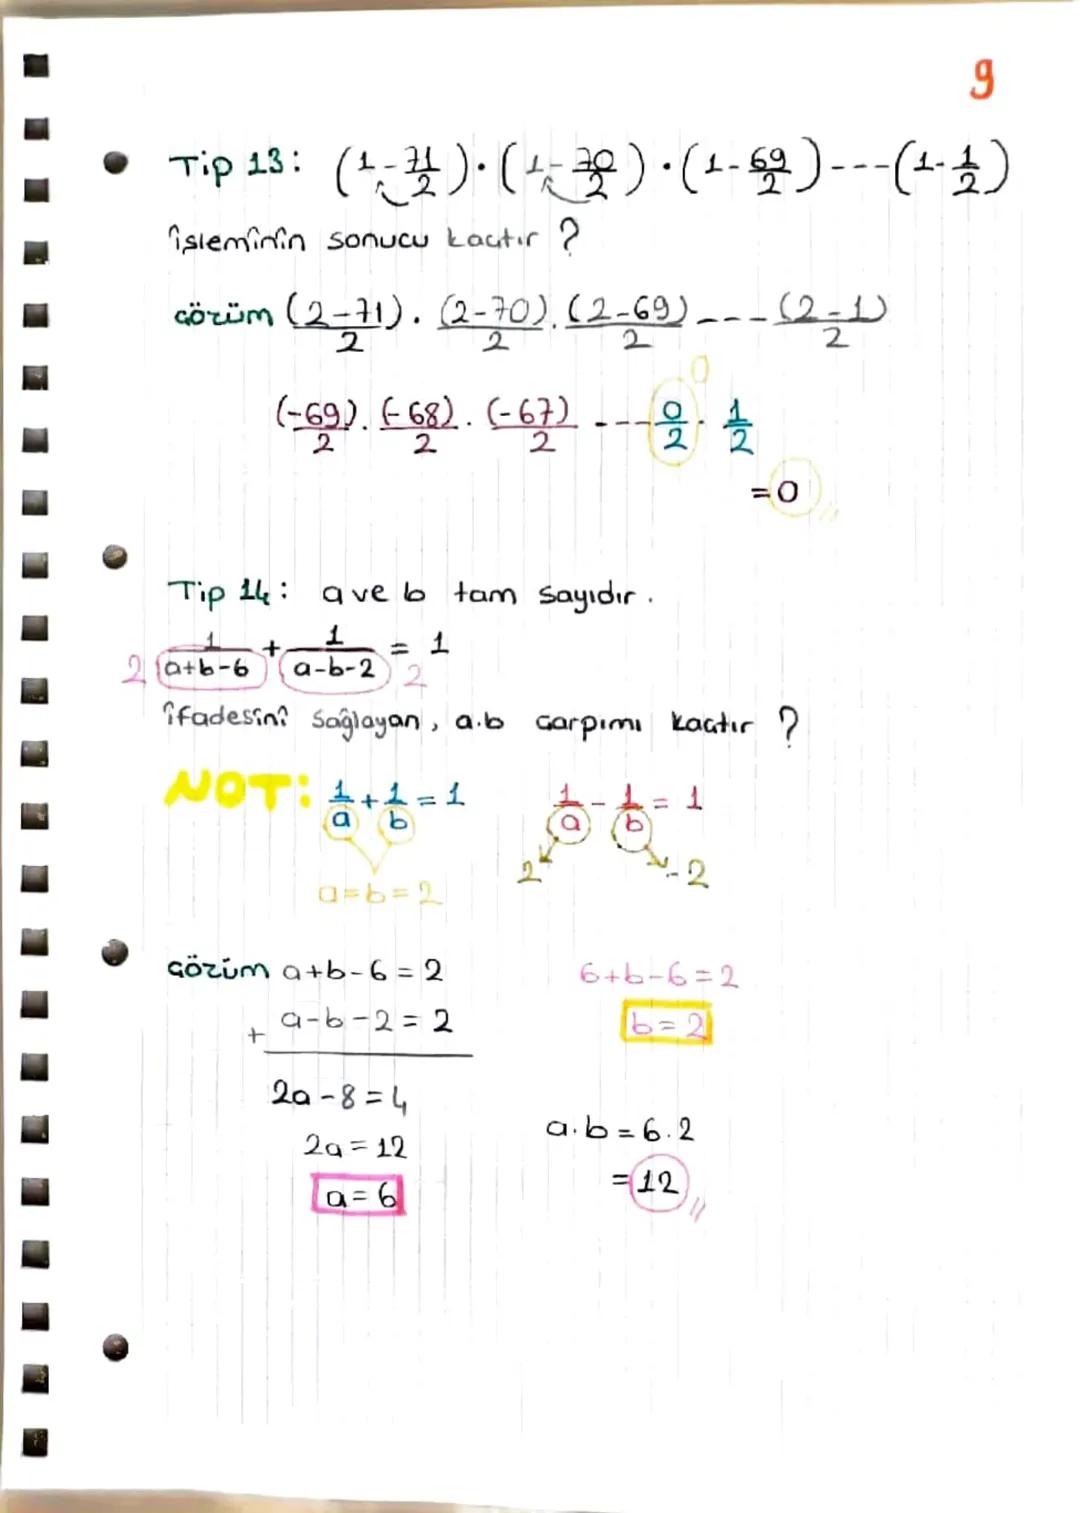 9
Tip 13: (1-71/2)·(1-70/2)·(1-69/2)---(1-1/2)
işleminin sonucu kaçtır ?
Çözüm (2-71)/2 . (2-70)/2 . (2-69)/2 ---- (2-1)/2
0
(-69)/2 . (-68)/2 . (-67)/2 ---- 0/2 . 1/2
=0
Tip 14: a ve b tam sayıdır.
1/(a+b-6) + 1/(a-b-2) = 1
2 2
ifadesini sağlayan, a.b çarpımı kaçtır ?
NOT: 1/a + 1/b = 1 1/a - 1/b = 1
2 -2
a=b=2
Çözüm a+b-6=2 6+b-6=2
+ a-b-2=2 b=2
2a-8=4
2a=12 a.b=6.2
a=6 =12